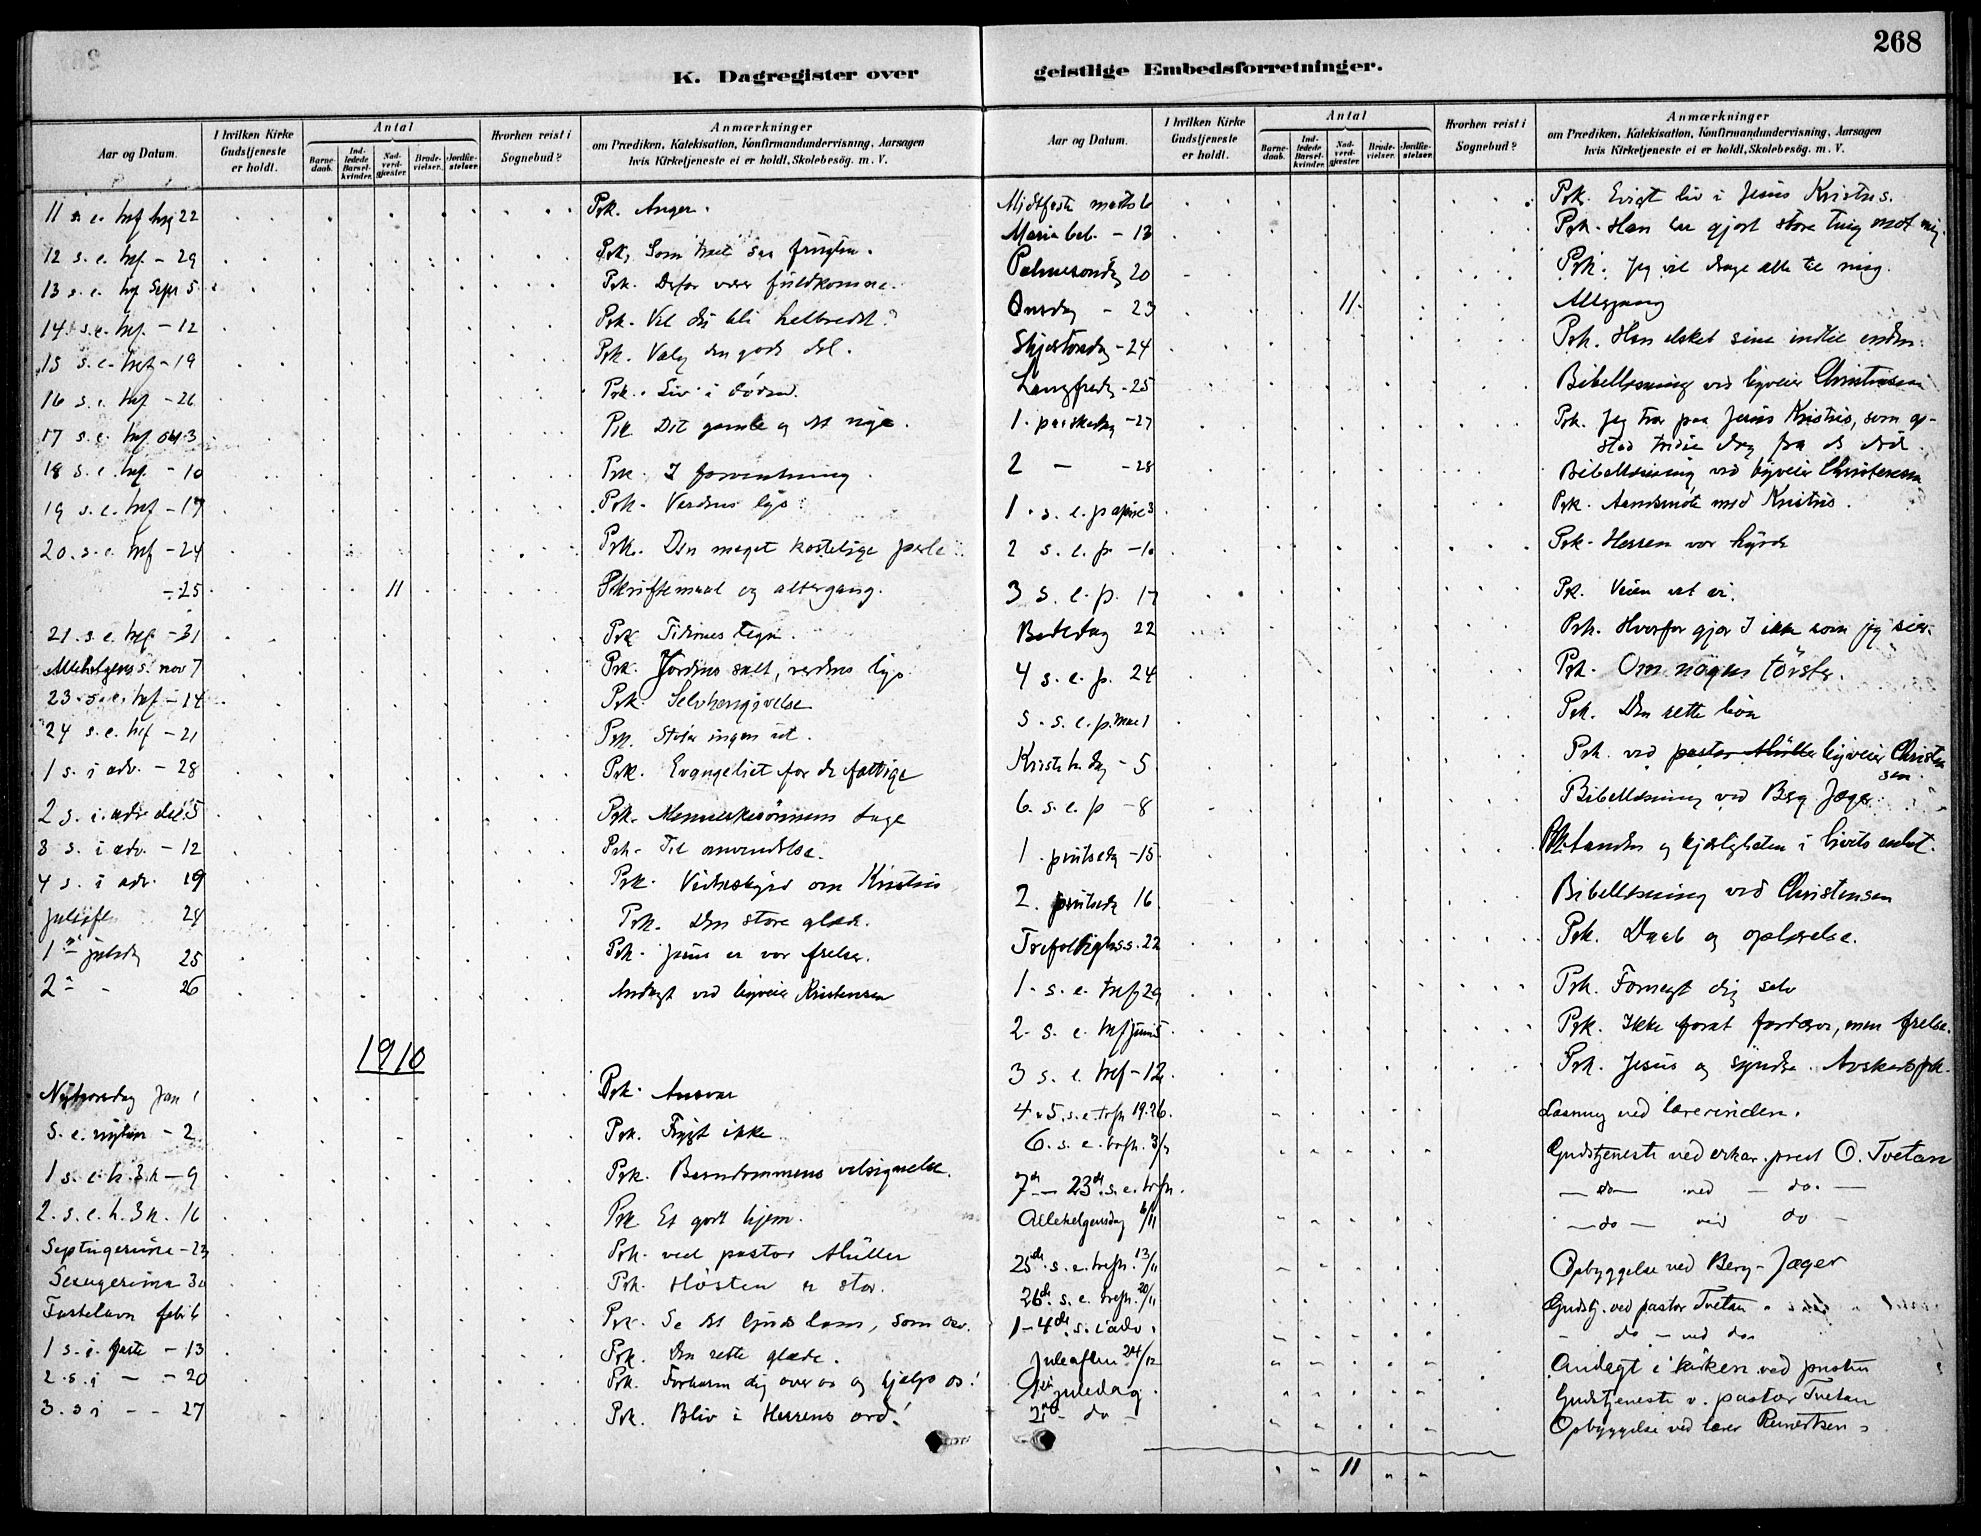 268
K. Dagregister over
geistlige Embedsforretninger.
Aar og Datum.
I hvilken Kirke
Gudstjeneste
er holdt.
Antal
Barne-
daab.
Ind-
ledede
Barsel-
kvinder.
Nad-
verd-
gjæster.
Brude-
vielser.
Jordfæ-
stelser.
Hvorhen reist i
Sognebud?
Anmærkninger
om Prædiken, Katekisation, Konfirmandundervisning, Aarsagen
hvis Kirketjeneste ei er holdt, Skolebesög. m. V.
11 s. e. tref 22 Prk. Anger.
12 s. e. tref. - 29 Prk. Som træet saa frugten.
13 s. e. tref Sept 5 Prk. Derfor vær fuldkomne.
14 s. e. tref. - 12 Prk. Vil du bli helbredet?
15 s. e. tref - 19 Prk. Valg den gode del.
16 s. e. tref - 26 Prk. Liv i döden.
17 s. e. tref. okt. 3 Prk Det gamle og det nye.
18 s. e. tref. - 10 Prk. I forventning.
19 s. e. tref - 17 Prk. Verdens lys.
20. s. e. tref - 24 Prk. Den meget kostelige perle
- 25 11 Skriftemaal og altergang.
21. s. e. tref - 31 Prk Tidernes tegn.
Allehelgens s. nov 7 Prk. Jordens salt, verdens lys.
23. s. e. tref - 14 Prk. Selvhengivelse
24 s. e. tref - 21 Prk. Stöter ingen ut.
1 s. i adv. - 28 Prk. Evangeliet for de fattige
2 s. i. adv. dec. 5 Prk. Menneskesönnens dage
3 s. i adv. - 12 Prk. Til omvendelse.
4 s. i adv. 19 Prk. Vidnesbyrd om Kristus
Juleaft. 24 Prk. Den store glæde.
1ste juledag 25 Prk. Jesus er vor frelser.
2 - 26 Andagt ved byveier Kristensen
1910
Nytaarsdag Jan 1 Prk. Ansvar
S. e. nytaar - 2 Prk. Frygt ikke
1 s. e. h. 3 k - 9 Prk. Barndommens velsignelse.
2. s. e. h. 3 k. 16 Prk Et godt hjem.
Septuagesima - 23 Prk. ved pastor Müller
Sexagesima 30 Prk. Hösten er stor.
Fastelavn febr 6 Prk. Se det Guds lam, som bær.
1 s. i. faste - 13 Prk. Den rette glæde.
2. s. i - - 20 Prk. Forbarm dig over os og hjælp os!
3. s i - - 27 Prk. Bliv i Herrens ord!
Aar og Datum.
I hvilken Kirke
Gudstjeneste
er holdt.
Antal
Barne-
daab.
Ind-
ledede
Barsel-
kvinder.
Nad-
verd-
gjæster.
Brude-
vielser.
Jordfæ-
stelser.
Hvorhen reist i
Sognebud?
Anmærkninger
om Prædiken, Katekisation, Konfirmandundervisning, Aarsagen
hvis Kirketjeneste ei er holdt, Skolebesög. m. V.
Midtfaste marts 6 Prk. Evigt liv i Jesus Kristus.
Maria beb. - 13 Prk. Han har gjort store ting mot mig.
Palmesöndag 20 Prk. Jeg vil drage alle til mig.
Onsdag - 23 11 Altergang
Skjærtorsdag - 24 Prk. Han elsket sine indtil enden.
Langfredag - 25 Bibellæsning ved byveier Christensen
1. paaskedag - 27 Prk. Jeg tror paa Jesus Kristus, som op-
stod tredie dag fra de döde
2 - - 28 Bibellæsning ved byveier Christensen
1. s. e. p april 3 Prk. Aandsmöte med Kristus.
2 s. e. p. - 10 Prk. Herren vor hyrde
3 s. e. p. 17 Prk. Veien at vi.
Bededag 22 Prk. Hvorfor gjör I ikke som jeg sier.
4 s. e. p. 24 Prk. Om nogen törster.
5. s. e. p. mai 1 Prk. Den rette bön
Kristi h. dag - 5 Prk. ved pastor Müller byveier Christen
sen.
6. s. e. p - 8 Bibellæsning ved Berg Jæger
1. pintsedag - 15 Prk. Aanden og kjærligheten i livets enhet.
2. pintsedag 16 Bibellæsning ved Christensen
Trefoldighets s. 22 Prk. Daab og oplærelse.
1. s. e. tref 29 Prk. Fornegt dig selv
2. s. e. tref juni 5 Prk. Ikke forat fordærve, men frelse.
3 s. e. tref - 12 Prk. Jesus og syndere. Avskedsprk.
4 & 5. s. e. trefh. 19. 26. Læsning ved lærerinden.
6. s. e. trefh. 3/7 Gudstjeneste ved erkar. prest O. Tvetan
7de - 23de. s. e. trefh. - do - ved - do. -
Allehelgensdag 6/11 - do - ved do -
25de. s. e. trefh. 13/11 Opbyggelse ved Berg-Jæger
26de. s. e. trefh. 20/11 Gudstj. ved pastor Tvetan
1-4de. s. i adv. - do - ved do.
Juleaften 24/12 Andagt i kirken ved presten
1ste juledag. Gudstjeneste v. pastor Tvetan
2. - do - Opbyggelse ved lærer Reinertsen
11